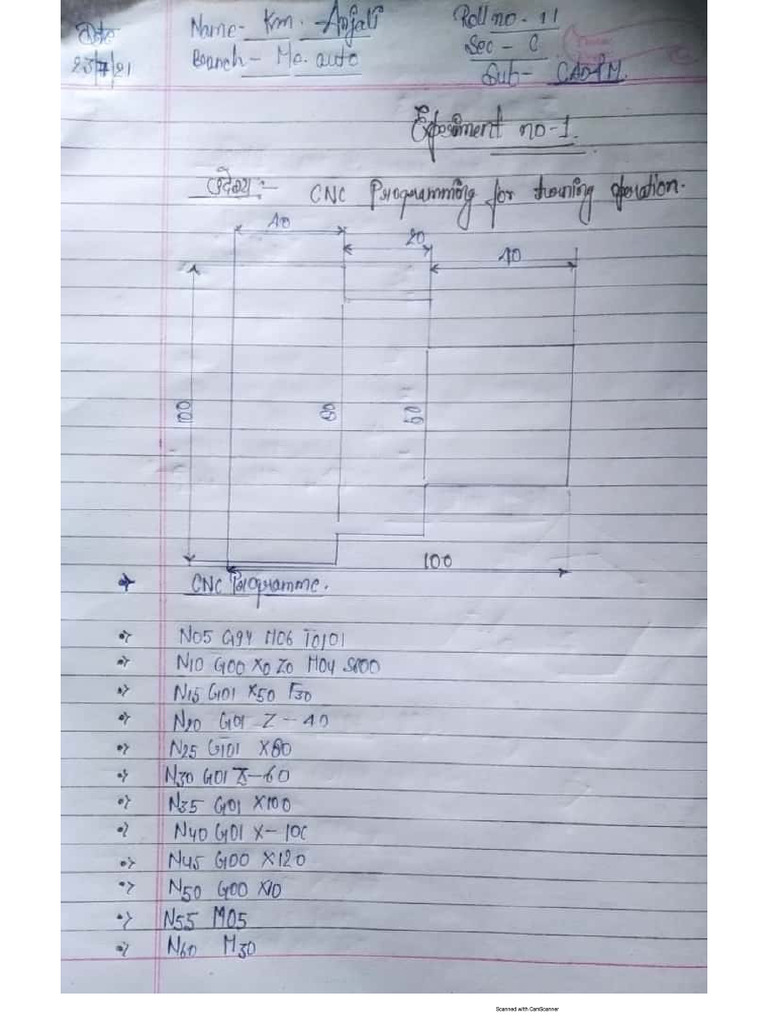 Name- Km. Anjali
Roll no - 11
23/7/21
Branch - Me. auto
Sec - C
Sub- CADM
Experiment no-1.
उद्देश्य:- CNC Programming for turning operation.
40
20
40
100
80
50
100
CNC Programme.
N05 G94 M06 T0101
N10 G00 X0 Z0 M04 S800
N15 G01 X50 F30
N20 G01 Z-40
N25 G01 X80
N30 G01 Z-60
N35 G01 X100
N40 G01 X-100
N45 G00 X120
N50 G00 X10
N55 M05
N60 M30
Scanned with CamScanner